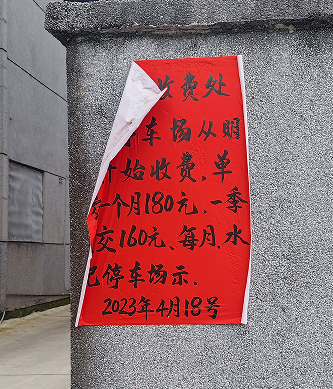 收费处
车场从明
开始收费.单
一个月180元.一季
交160元、每月.水
已停车场示.
2023年4月18号